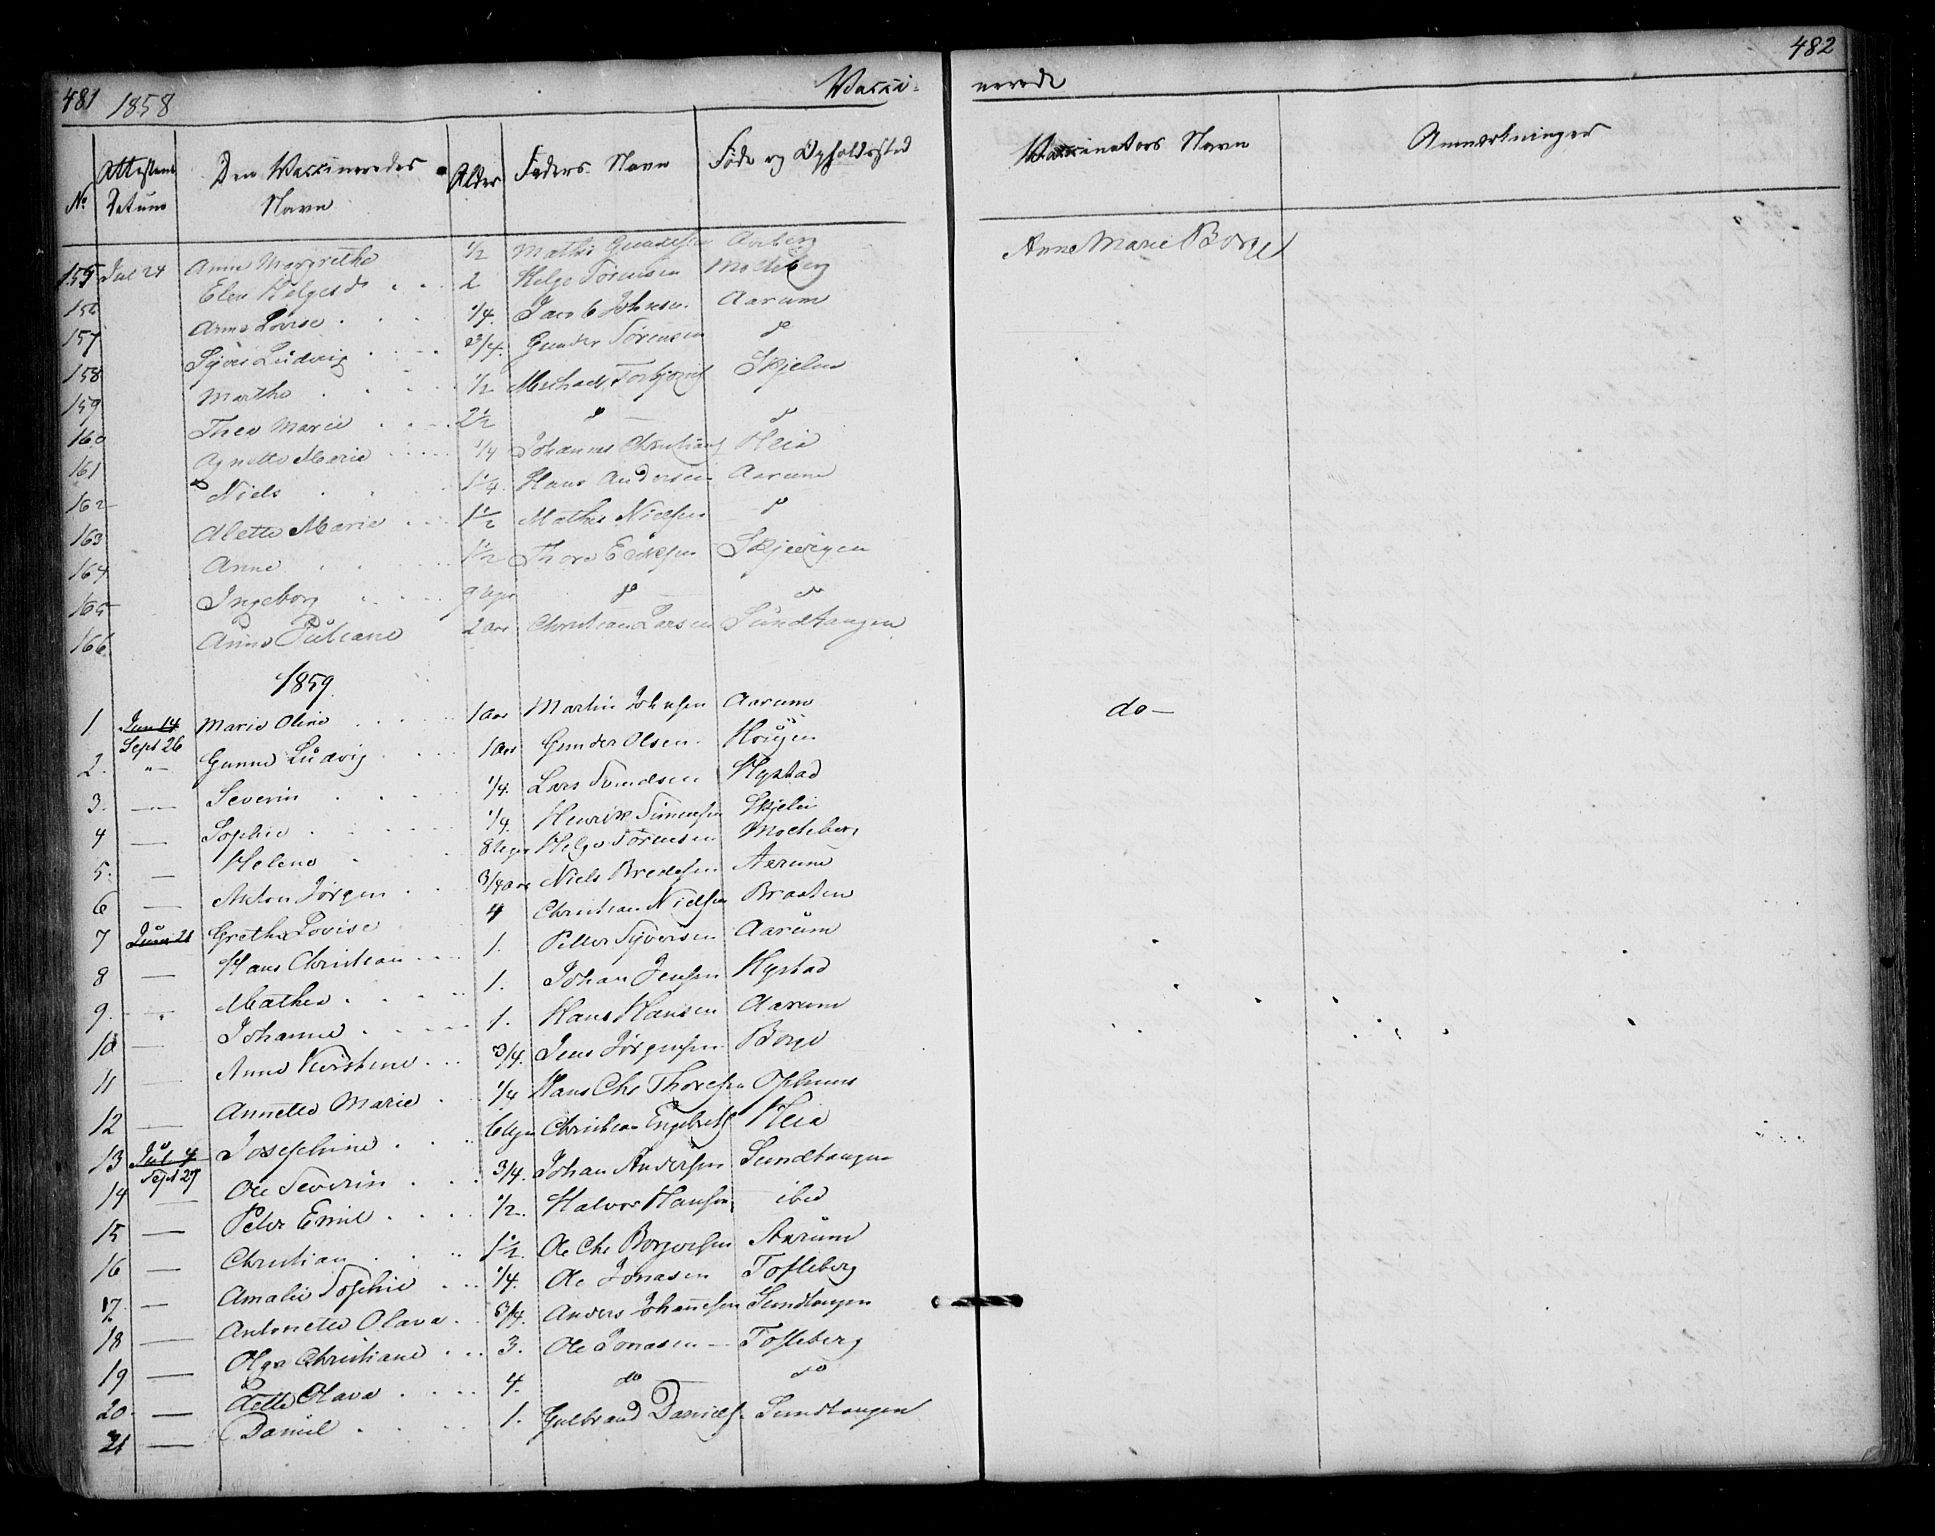 481 1858 Vacci- nerede 482
No Attestens Datum Den Vaccineredes Navn Alder Faders Navn Føde og Opholdssted Vaccinateurs Navn Anmærkninger
155 Jul 24 Anne Margrethe 1/2 Mathis Aarberg Anne Marie Borge
156 Elen Helgesd 2 Helge Sørensen Mocheberg
157 Anne Lovise 1/4 Jacob Johnsen Aarum
158 Syver Ludvig 2 3/4 Gunder Sørensen do
159 Marthe 1/2 Michael Torbjørns Skjelin
160 Thea Marie 2 1/2 do do
161 Agnette Marie 1/4 Johannes Christians Heia
162 Niels 1 1/4 Hans Andersen Aarum
163 Alette Marie 1 1/2 Mathis Nielsen do
164 Anne 1 1/2 Thore Skjevigen
165 Ingeborg 9 Uger do do
166 Anne Juliane 2 Aar Christian Larsen Sundtangen
1859
1 Jun 14 Sept 26 Marie Oline 1 Aar Martin Johnsen Aarum do
2. -"- Gunne Ludvig 1 Aar Gunder Olsen Hougen
3. -"- Severin 1/4 Lars Svendsen Hystad
4 — Sophie 1/4 Henrik Simensen Skjelin
5. — Helene 8 Uger Helge Sørensen Mocheberg
6 — Anton Jørgen 3/4 Aar Niels Aarum
7 Juni 21 Grethe Lovise 4 Christian Nielsen Braaten
8 — Hans Christian 1. Petter Syversen Aarum
9. — Mathea 1. Johan Jensen Hystad
10 — Johanne 1. Hans Hansen Aarum
11 — Anne Kirstine 3/4. Jens Jørgensen Borge
12 — Annette Marie 1/4 Hans Chr Thoresen Ophuus
13 Jul 4 Sept 27 Josephine 6 Uger Christian Engebrets Heia
14 — Ole Severin 3/4. Johan Andersen Sundtangen
15 — Peter Emil 1/2. Halvor Hansen ibid
16 — Christian 1 1/2. Ole Chr Borgersen Aarum
17. — Amalie Sophie 1/4. Ole Jonasen Tofteberg
18 — Antonette Olava 3/4. Anders Johannesen Sundtangen
19 — Olga Christiane 3. Ole Jonasen Tofteberg
20. — Olava 4. do do
21 — Daniel 1. Gulbrand Daniels. Sundtangen